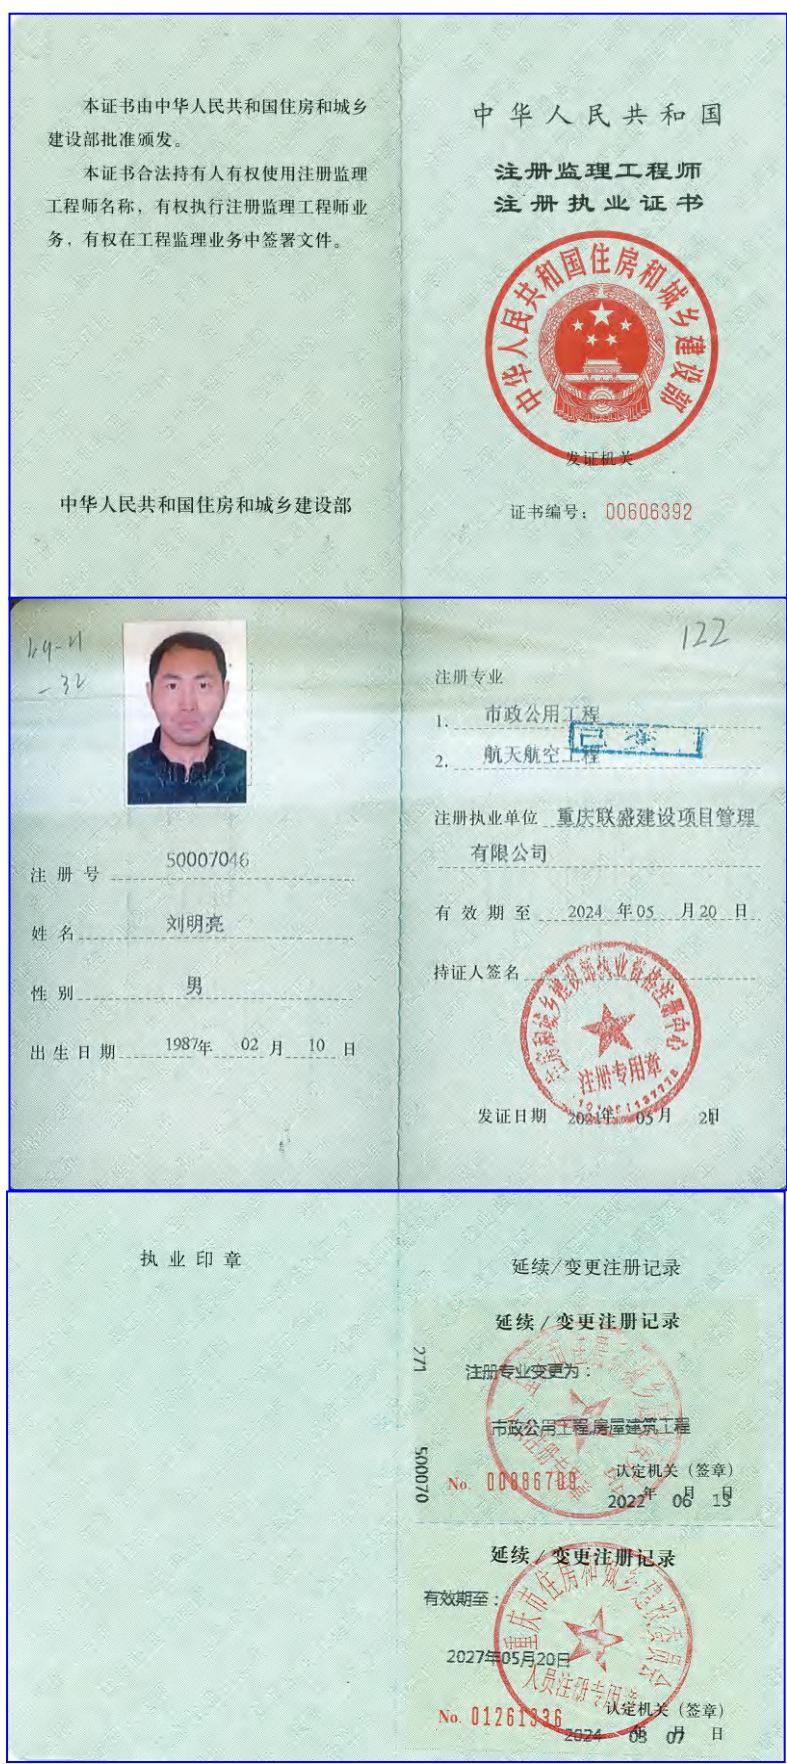 本证书由中华人民共和国住房和城乡
建设部批准颁发。
本证书合法持有人有权使用注册监理
工程师名称，有权执行注册监理工程师业
务，有权在工程监理业务中签署文件。
中华人民共和国住房和城乡建设部
中华人民共和国
注册监理工程师
注册执业证书
中华人民共和国住房和城乡建设部
发证机关
证书编号： 00606392
注册号 50007046
姓名 刘明亮
性别 男
出生日期 1987年 02 月 10 日
122
注册专业
1. 市政公用工程
2. 航天航空工程
注册执业单位 重庆联盛建设项目管理
有限公司
有效期至 2024 年 05 月 20 日
持证人签名
住房和城乡建设部执业资格注册中心
注册专用章
发证日期 2021年 05 月 21日
执业印章
延续/变更注册记录
延续/变更注册记录
271
500070
注册专业变更为：
市政公用工程,房屋建筑工程
No. 00886709
认定机关（签章）
2022年 06月 13日
延续/变更注册记录
有效期至：
2027年05月20日
重庆市住房和城乡建设委员会
人员注册专用章
No. 01261336
认定机关（签章）
2024 年 03 月 07 日